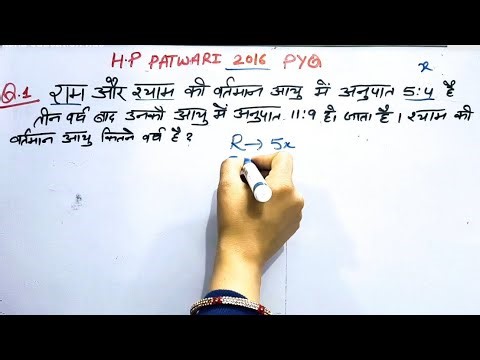 H.P PATWARI 2016 PYQ
x
Q.1 राम और श्याम की वर्तमान आयु में अनुपात 5:4 है
तीन वर्ष बाद उनकी आयु में अनुपात 11:9 हो जाता है । श्याम की
वर्तमान आयु कितने वर्ष है ?
R → 5x